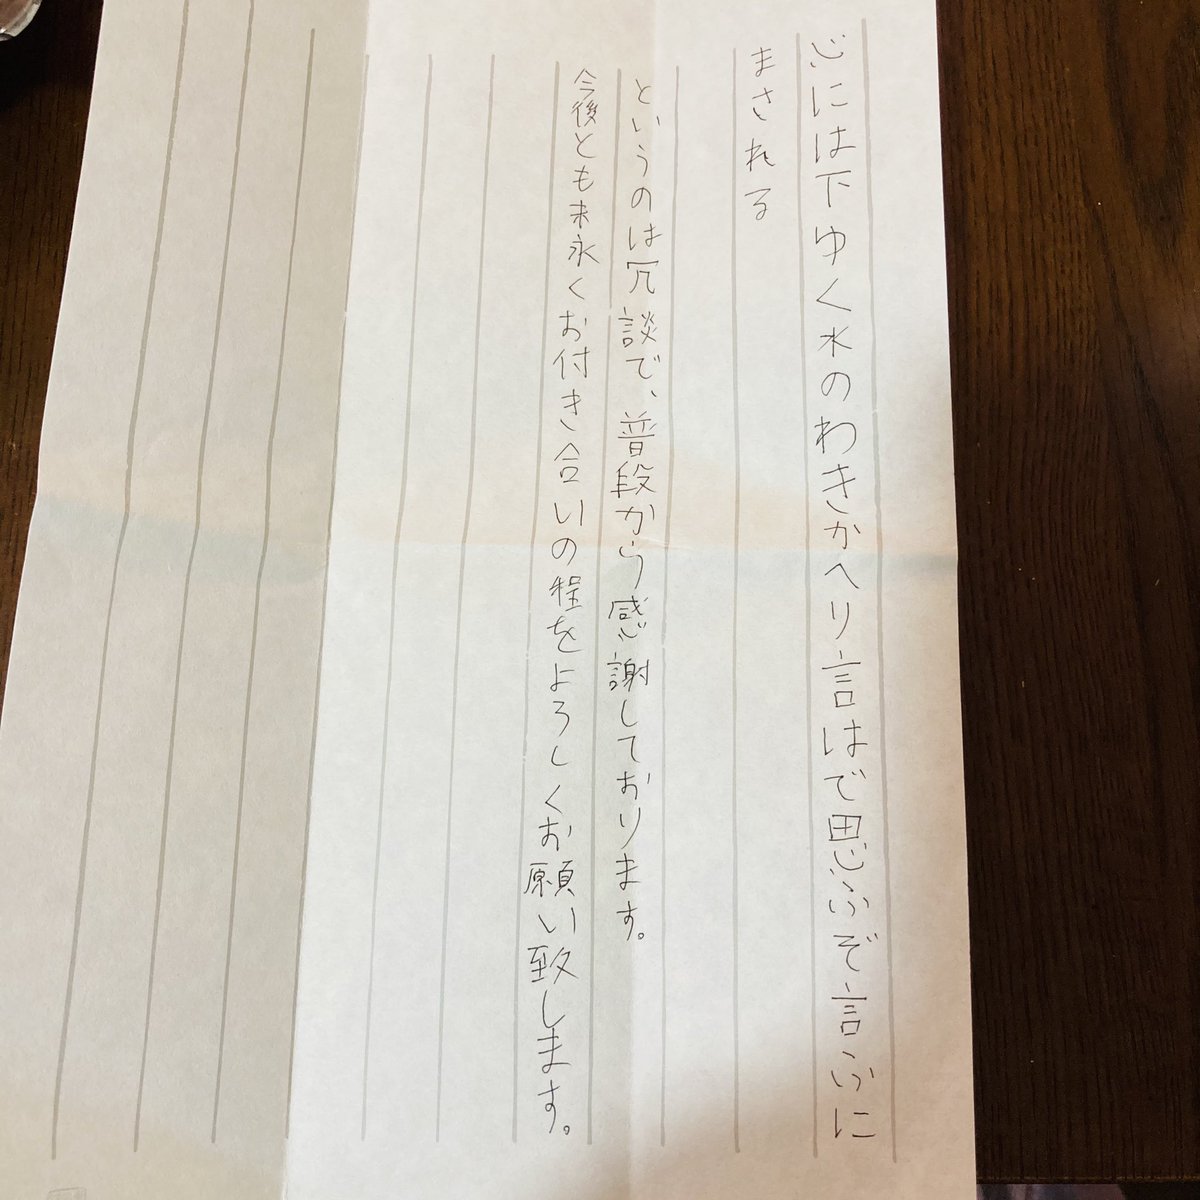 心には下ゆく水のわきかへり言はで思ふぞ言ふに
まされる
というのは冗談で、普段から感謝しております。
今後とも末永くお付き合いの程をよろしくお願い致します。